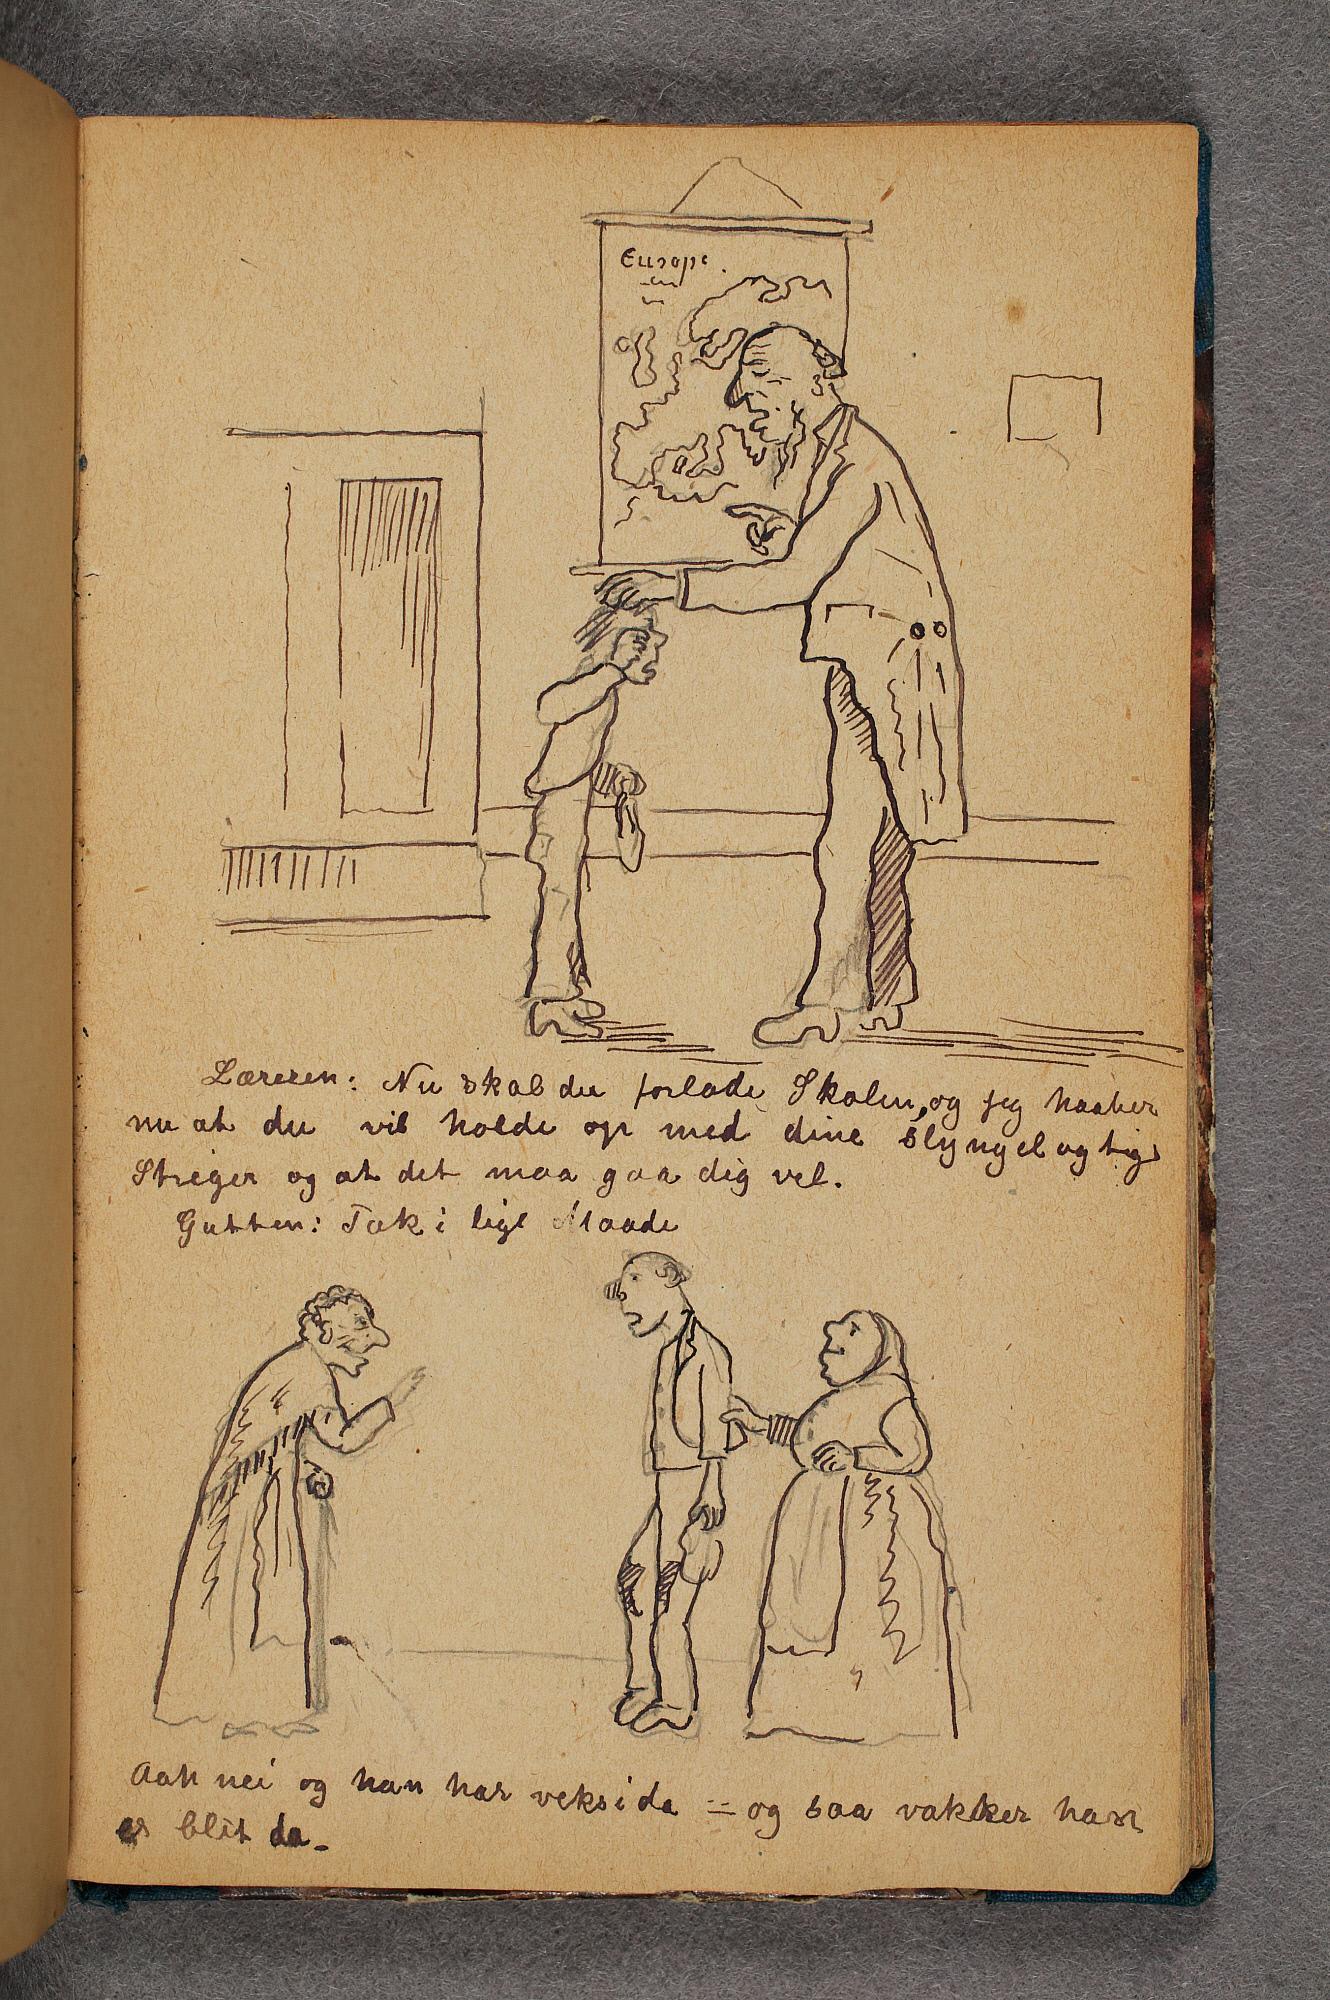 Europe
Læreren: Nu skal du forlade Skolen, og jeg haaber
nu at du vil holde op med dine slyngelogtige
Streger og at det maa gaa dig vel.
Gutten: Tak i lige Maade
Aah nei og han har veksi da = og saa vakker han
er blit da -